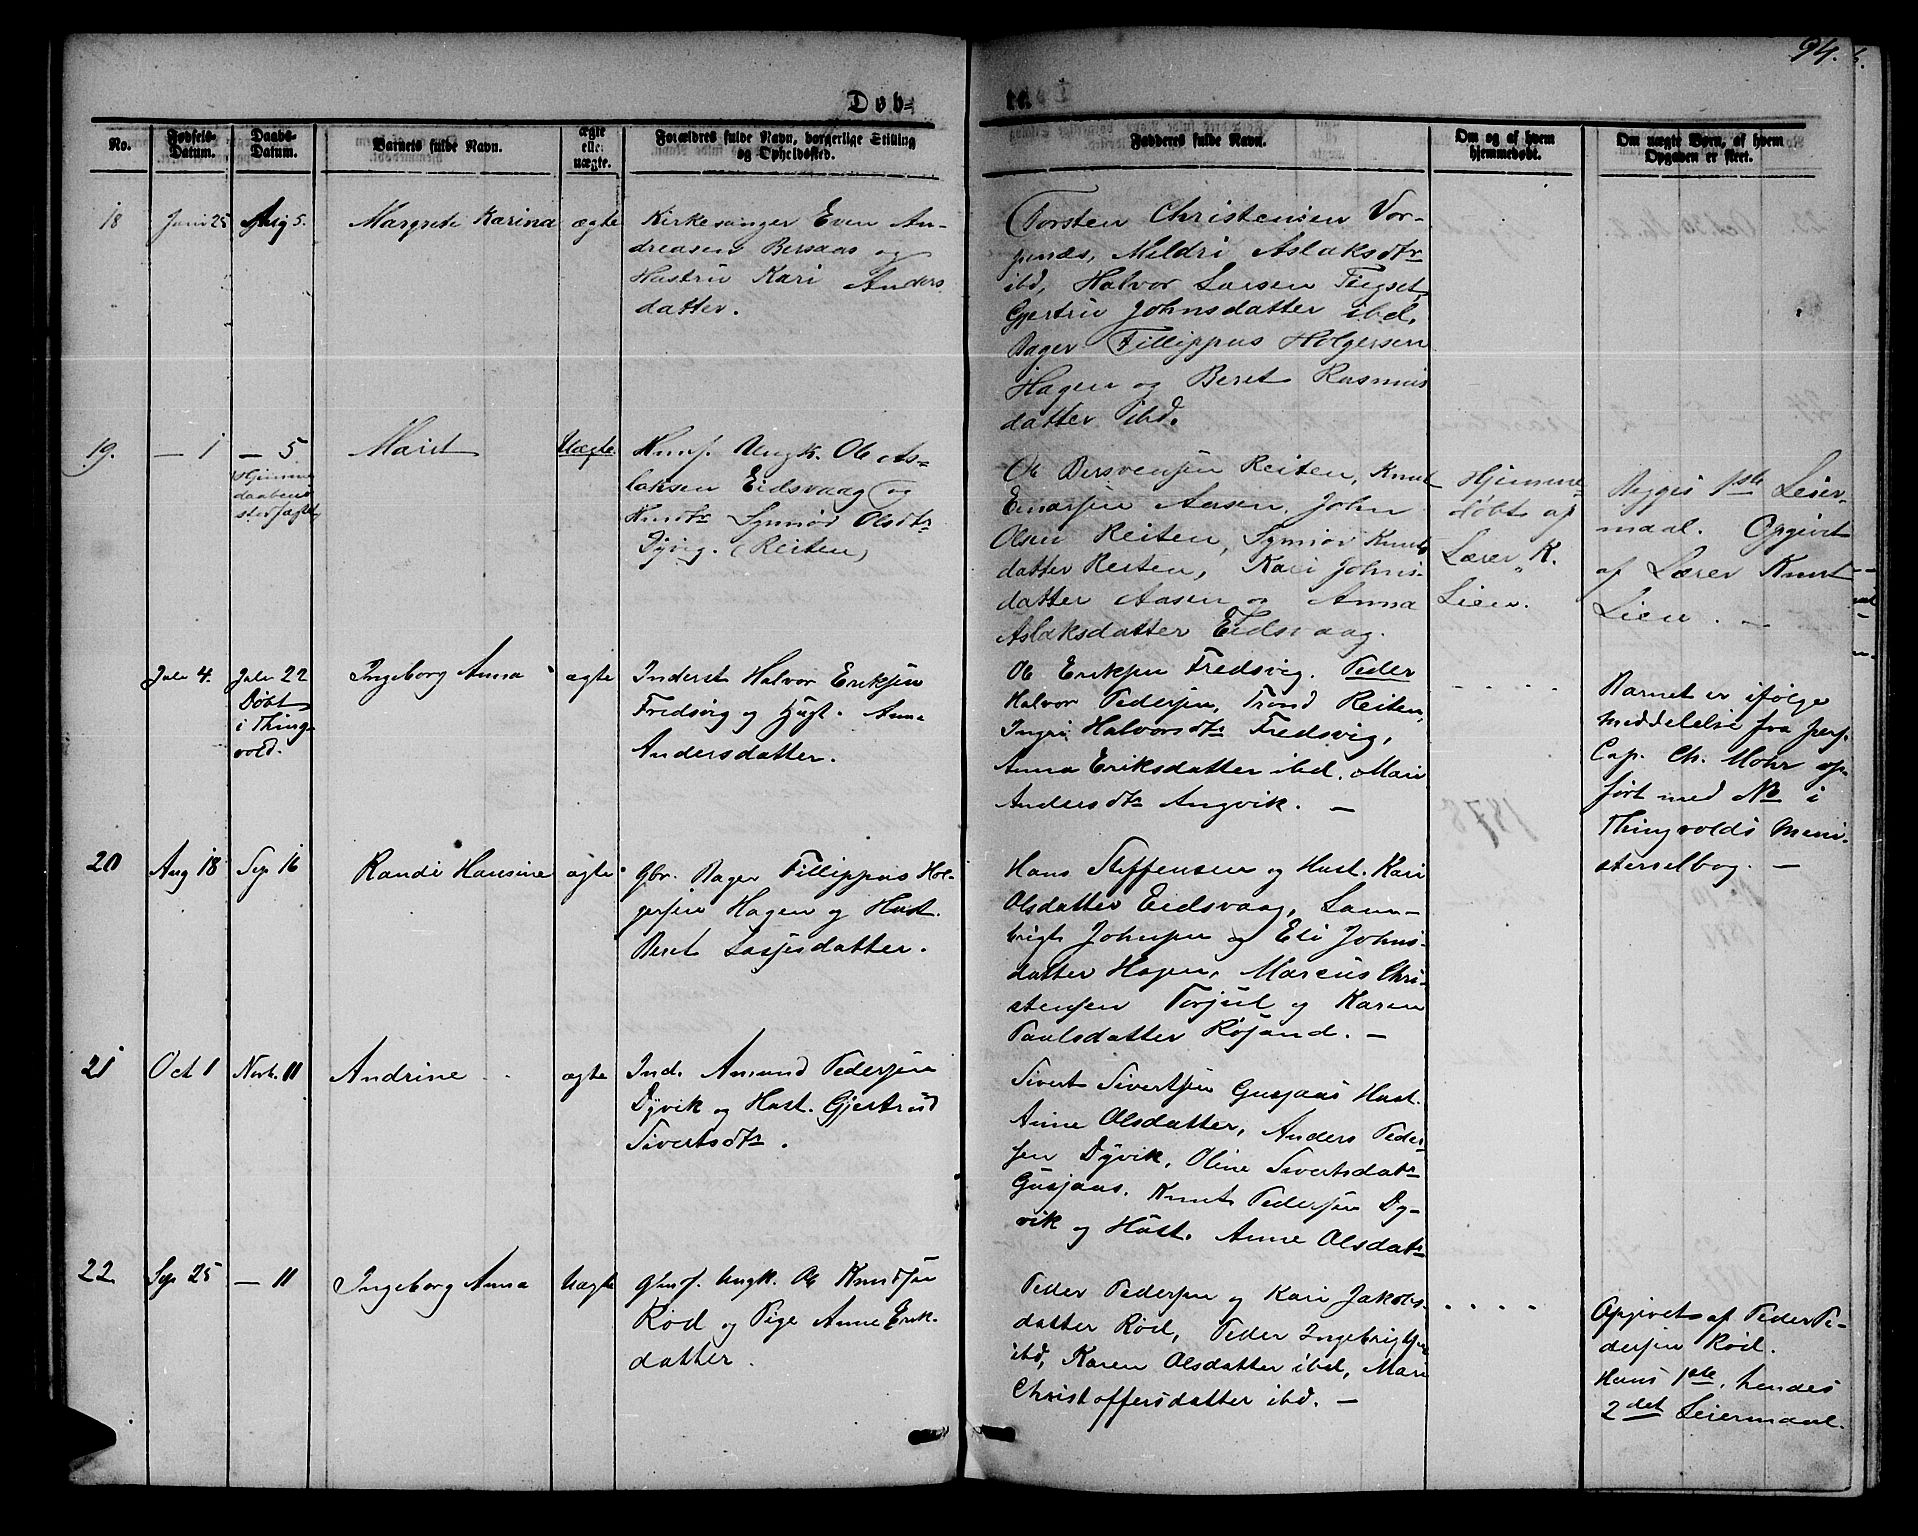 94.
Døb-
te.
No.
Fødsels-
Datum.
Daabs-
Datum.
Barnets fulde Navn.
ægte
eller
uægte.
Forældres fulde Navn, borgerlige Stilling
og Opholdssted.
Fadderes fulde Navn.
Om og af hvem
hjemmedøbt.
Om uægte Børn, af hvem
Opgaven er skeet.
18
Juni 25
Aug 5.
Margrete Karina
ægte
Kirkesanger Even An-
dreasen Bersaas og
Hustru Kari Anders
datter.
Torsten Christensen Vor-
penæs, Mildri Aslaksdtr
ibd, Halvor Larsen Tiigset,
Gjertru Johnsdatter ibd,
Bager Fillippus Holgersen
Hagen og Beret Rasmus
datter ibd.
19.
— 1
— 5
Hjemme
daaben
stadfæstet
Marit
Uægte
Ungk. Ole As-
laksen Eidsvaag og
Synnöv Olsdtr
Dÿvig. (Reiten)
Ole Bersvensen Reiten, Knut
Einarsen Aasen, John
Olsen Reiten, Synnöv Knuts
datter Reiten, Kari Johns-
datter Aasen og Anna
Aslaksdatter Eidsvaag.
Hjemme-
döbt af
Lærer K.
Lien.
Begges 1ste Leier-
maal. Opgivet
af Lærer Knut
Lien. —
Juli 4.
Juli 22
Döbt
i Thing-
vold.
Ingeborg Anna
ægte
Inderst Halvor Eriksen
Fredsvig og Hust. Anne
Andersdatter.
Ole Eriksen Fredsvig. Peder
Halvor Pedersen, Trond Reiten,
Ingri Halvorsdtr Fredsvig,
Anna Eriksdatter ibd. Mari
Andersdtr Angvik. —
Barnet er ifølge
meddelelse fra pers.
Cap. Ch. Mohr op-
ført med No i
Thingvolds Mini-
sterselbog. —
20
Aug 18
Sep 16
Randi Hansine
ægte
Gbr. Bager Fillippus Hol-
gersen Hagen og Hust.
Beret Lassesdatter.
Hans Steffensen og Hust. Kari
Olsdatter Eidsvaag, Lam-
brigt Johnsen og Eli Johns-
datter Hagen, Marcus Chri-
stensen Torjul og Karen
Paulsdatter Rösand. —
21
Oct 1
Novb. 11
Andrine
ægte
Ind. Amund Pedersen
Dÿvik og Hust. Gjertrud
Sivertsdtr.
Sivert Sivertsen Gusjaas Hust.
Anne Olsdatter, Anders Peder-
sen Dÿvik, Oline Sivertsdatr
Gusjaas. Knut Pedersen Dy-
vik og Hust. Anne Olsdatr
22
Sep 25
— 11
Ingeborg Anna
Uægte
Ungk. Ole Knudsen
Rød og Pige Anne Erik-
datter.
Peder Pedersen og Kari Jakobs-
datter Rød, Peder Ingebrigtsen
ibd, Karen Olsdatter ibd, Mari
Christoffersdatter ibd. —
Opgivet af Peder Pe-
dersen Rød.
Hans 1ste, hendes
2det Leiermaal.